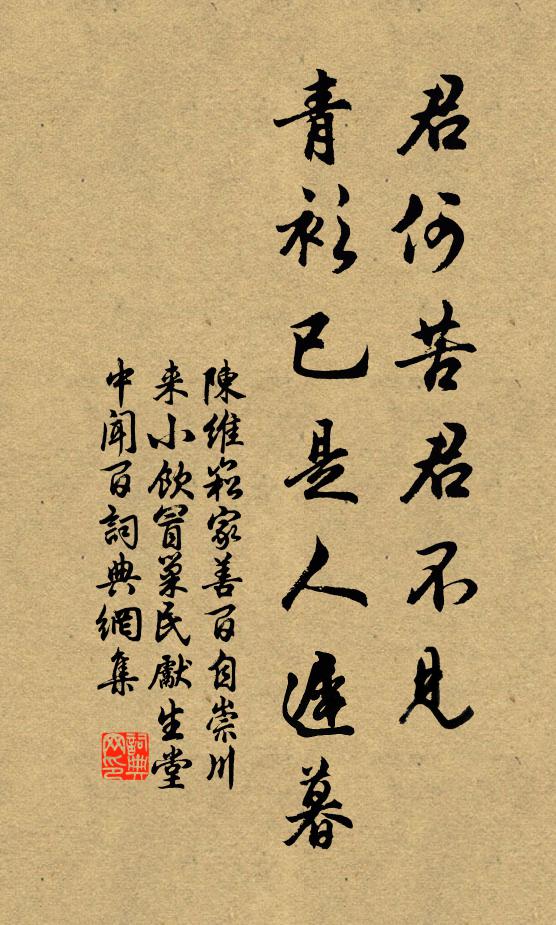 君何苦君不見
青衫已是人遲暮
陳維崧家善百自崇川
来小飲冒巢民獻生堂
中聞百詞典網集
詞典
网印